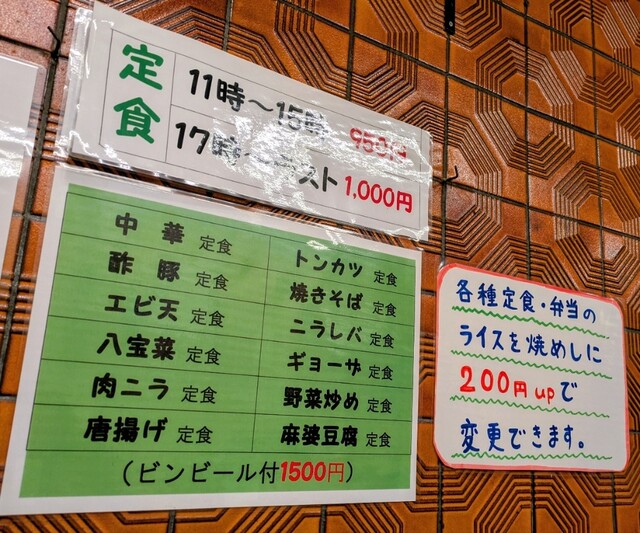 定食
11時～15時 950円
17時～ラスト 1,000円
中華 定食 トンカツ 定食
酢豚 定食 焼きそば 定食
エビ天 定食 ニラレバ 定食
八宝菜 定食 ギョーザ 定食
肉ニラ 定食 野菜炒め 定食
唐揚げ 定食 麻婆豆腐 定食
(ビンビール付1500円)
各種定食・弁当の
ライスを焼めしに
200円upで
変更できます。